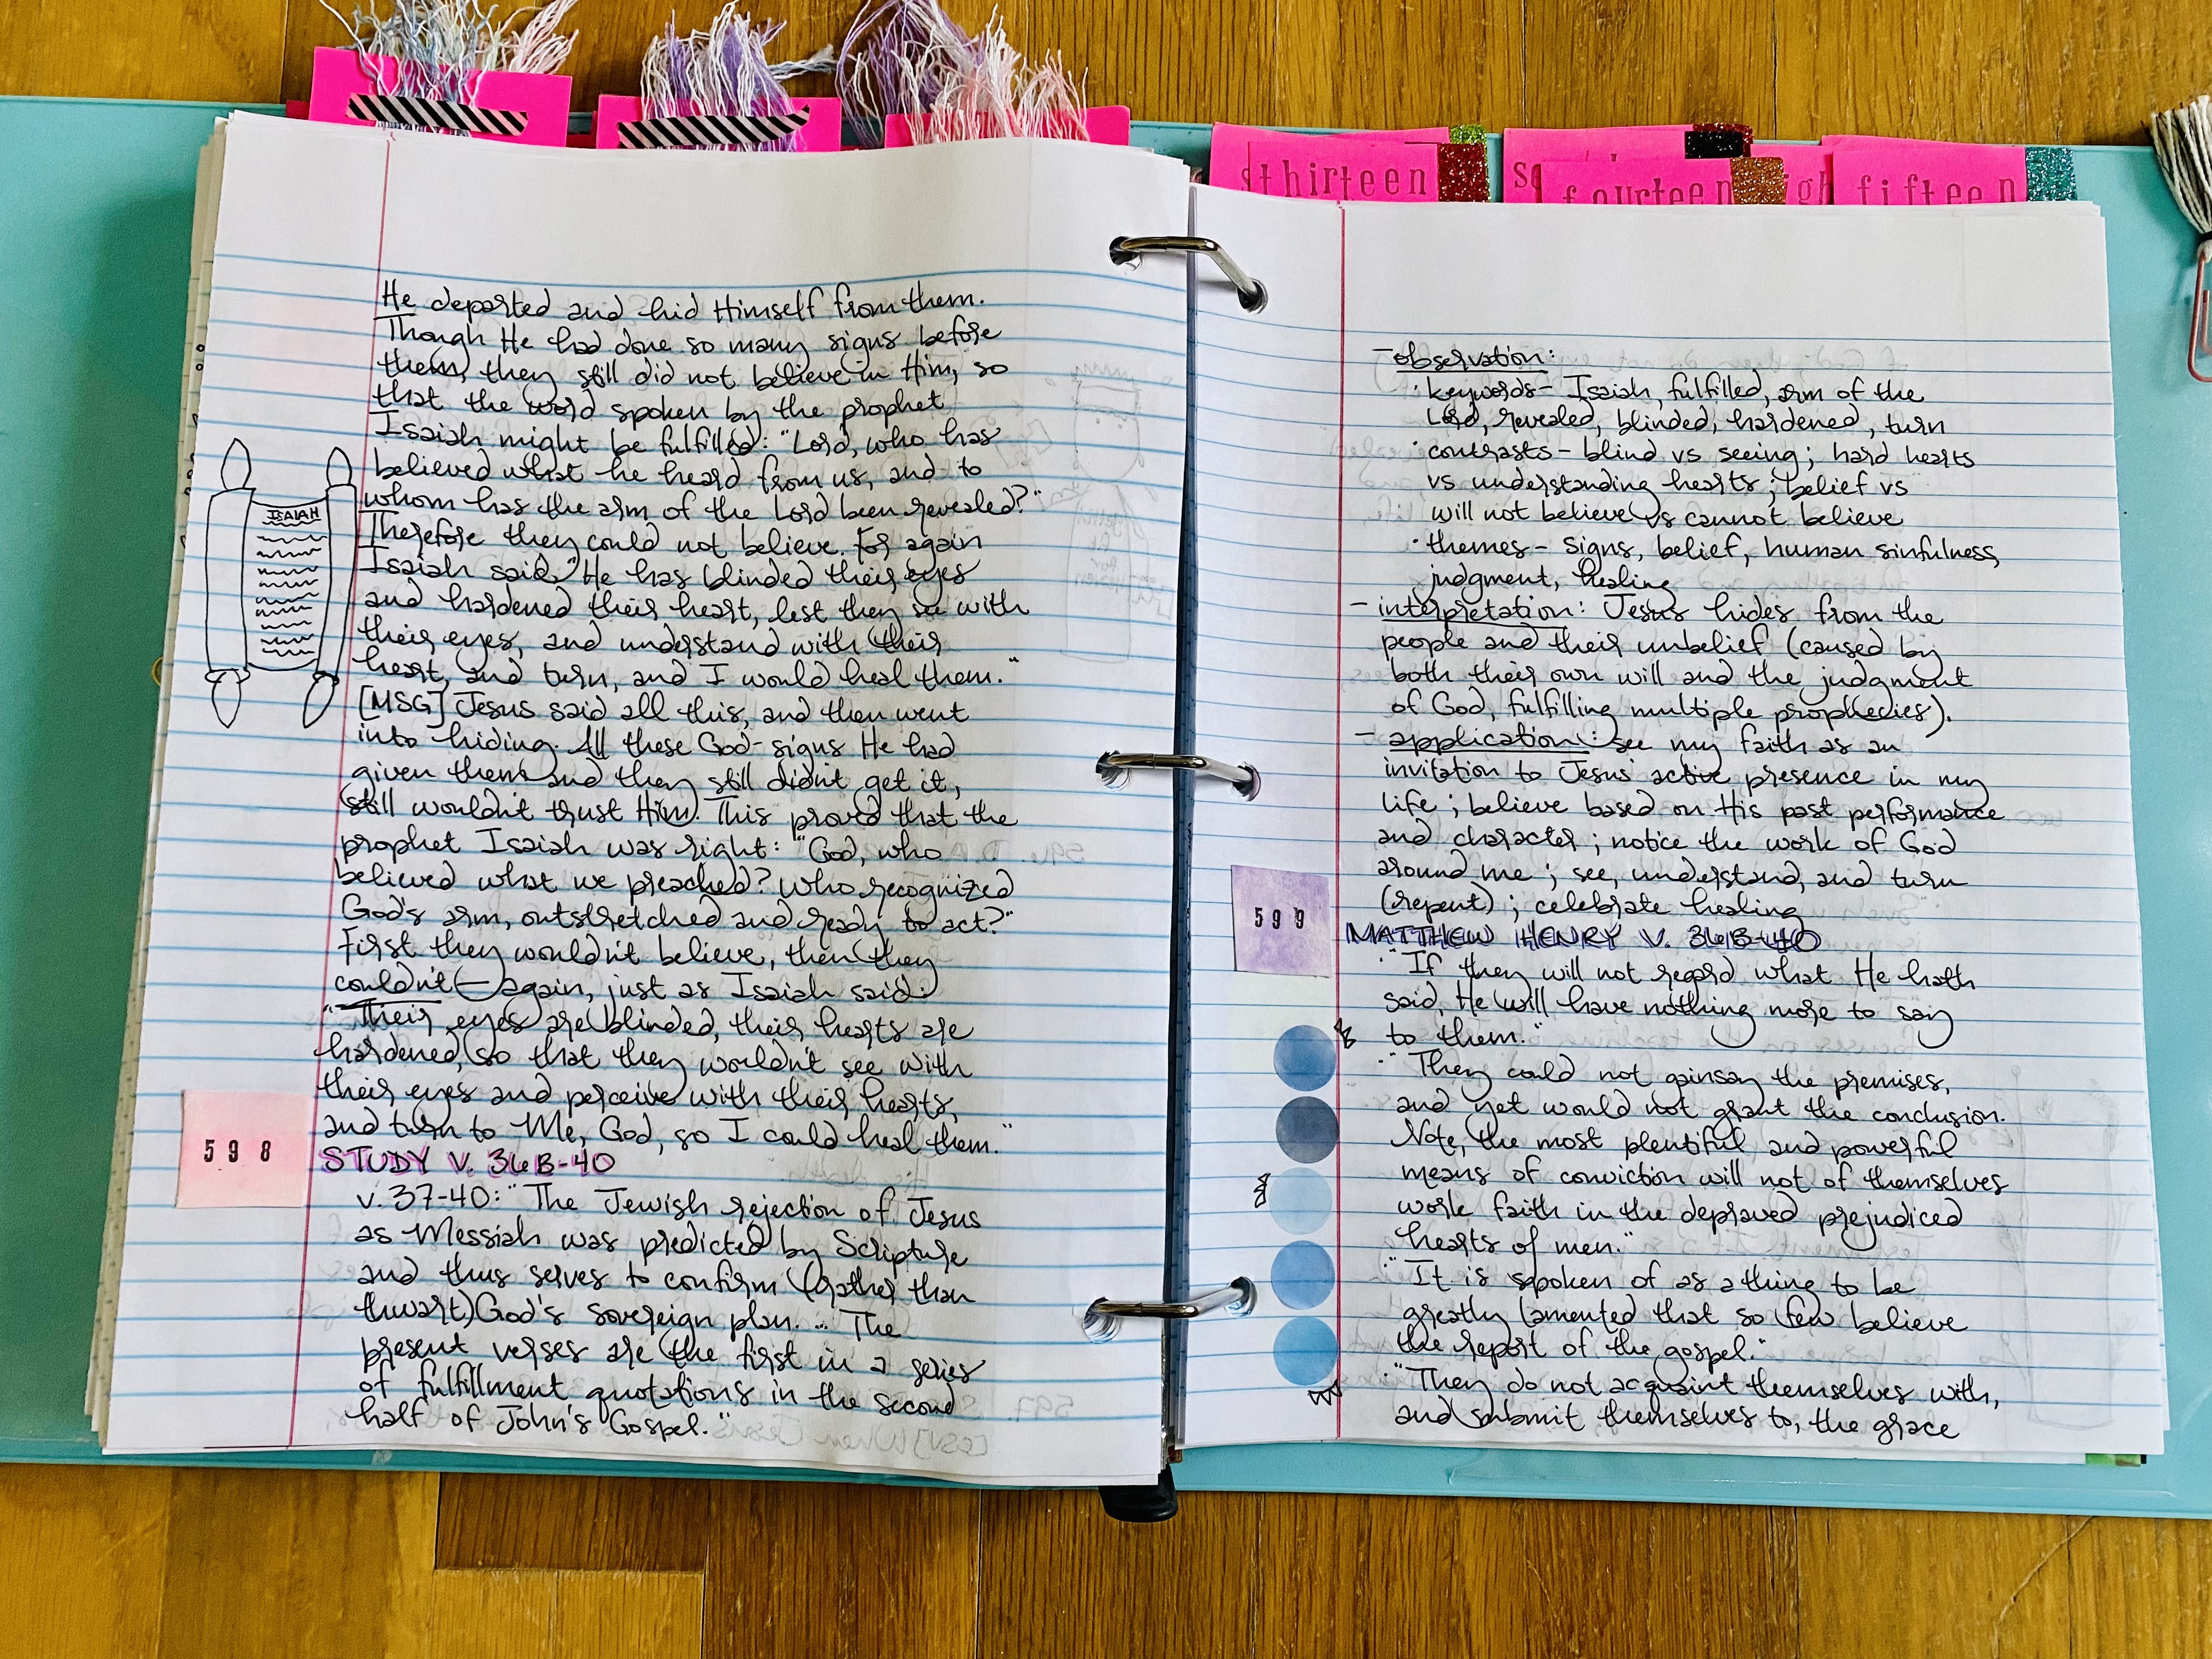 He departed and hid Himself from them.
Though He had done so many signs before
them, they still did not believe in Him, so
that the word spoken by the prophet
Isaiah might be fulfilled: "Lord, who has
believed what he heard from us, and to
whom has the arm of the Lord been revealed?"
Therefore they could not believe. For again
Isaiah said, "He has blinded their eyes
and hardened their heart, lest they see with
their eyes, and understand with their
heart, and turn, and I would heal them."
[MSG] Jesus said all this, and then went
into hiding. All these God-signs He had
given them and they still didn't get it,
still wouldn't trust Him. This proved that the
prophet Isaiah was right: "God, who
believed what we preached? Who recognized
God's arm, outstretched and ready to act?"
First they wouldn't believe, then they
couldn't – again, just as Isaiah said:
"Their eyes are blinded, their hearts are
hardened, so that they wouldn't see with
their eyes and perceive with their hearts,
and turn to Me, God, so I could heal them."
ISAIAH
598
STUDY V. 36B-40
v. 37-40: "The Jewish rejection of Jesus
as Messiah was predicted by Scripture
and thus serves to confirm (rather than
thwart) God's sovereign plan. ... The
present verses are the first in a series
of fulfillment quotations in the second
half of John's Gospel."
thirteen
fourteen
fifteen
- observation:
· keywords - Isaiah, fulfilled, arm of the
Lord, revealed, blinded, hardened, turn
· contrasts - blind vs seeing; hard hearts
vs understanding hearts; belief vs
will not believe vs cannot believe
· themes - signs, belief, human sinfulness,
judgment, healing
- interpretation: Jesus hides from the
people and their unbelief (caused by
both their own will and the judgment
of God, fulfilling multiple prophecies).
- application: see my faith as an
invitation to Jesus' active presence in my
life; believe based on His past performance
and character; notice the work of God
around me; see, understand, and turn
(repent); celebrate healing
599
MATTHEW HENRY V. 36B-40
· "If they will not regard what He hath
said, He will have nothing more to say
to them."
· "They could not gainsay the premises,
and yet would not grant the conclusion.
Note, the most plentiful and powerful
means of conviction will not of themselves
work faith in the depraved prejudiced
hearts of men."
· "It is spoken of as a thing to be
greatly lamented that so few believe
the report of the gospel."
· "They do not acquaint themselves with,
and submit themselves to, the grace